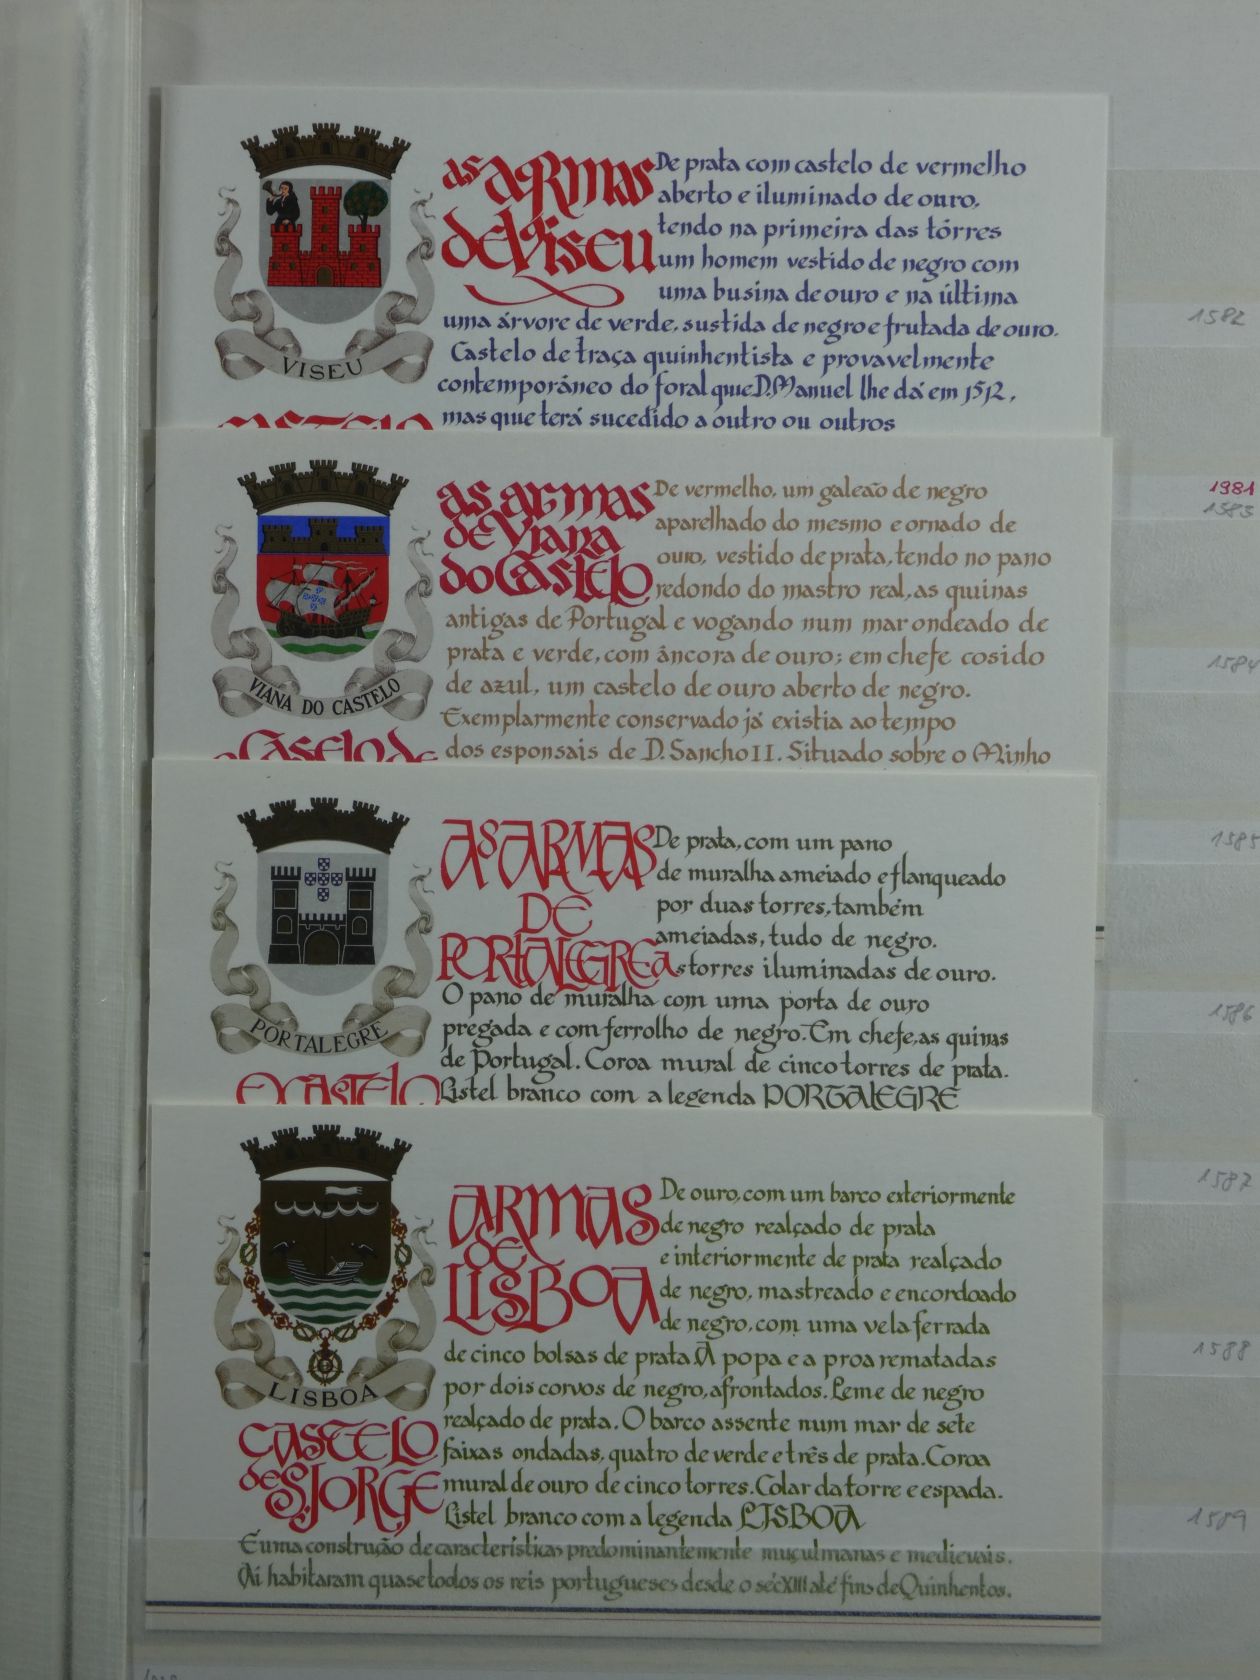 As Armas
de Viseu
De prata com castelo de vermelho
aberto e iluminado de ouro,
tendo na primeira das tôrres
um homem vestido de negro com
uma busina de ouro e na última
uma árvore de verde, sustida de negro e frutada de ouro.
Castelo de traça quinhentista e provavelmente
contemporâneo do foral que D. Manuel lhe dá em 1512,
mas que terá sucedido a outro ou outros
VISEU
1582
As Armas
de Viana
do Castelo
De vermelho, um galeão de negro
aparelhado do mesmo e ornado de
ouro, vestido de prata, tendo no pano
redondo do mastro real, as quinas
antigas de Portugal e vogando num mar ondeado de
prata e verde, com âncora de ouro; em chefe cosido
de azul, um castelo de ouro aberto de negro.
Exemplarmente conservado já existia ao tempo
dos esponsais de D. Sancho II. Situado sobre o Minho
VIANA DO CASTELO
O Castelo de
1981
1583
1584
AS ARMAS
DE
PORTALEGRE
De prata, com um pano
de muralha ameiado e flanqueado
por duas torres, também
ameiadas, tudo de negro.
As torres iluminadas de ouro.
O pano de muralha com uma porta de ouro
pregada e com ferrolho de negro. Em chefe, as quinas
de Portugal. Coroa mural de cinco torres de prata.
Listel branco com a legenda PORTALEGRE
PORTALEGRE
1585
1586
ARMAS
DE
LISBOA
De ouro, com um barco exteriormente
de negro realçado de prata
e interiormente de prata realçado
de negro, mastreado e encordoado
de negro, com uma vela ferrada
de cinco bolsas de prata. A popa e a proa rematadas
por dois corvos de negro, afrontados. Leme de negro
realçado de prata. O barco assente num mar de sete
faixas ondadas, quatro de verde e três de prata. Coroa
mural de ouro de cinco torres. Colar da torre e espada.
Listel branco com a legenda LISBOA
LISBOA
CASTELO
de S. JORGE
É uma construção de características predominantemente muçulmanas e medievais.
Aí habitaram quase todos os reis portugueses desde o séc XIII até fins de Quinhentos.
1587
1588
1589